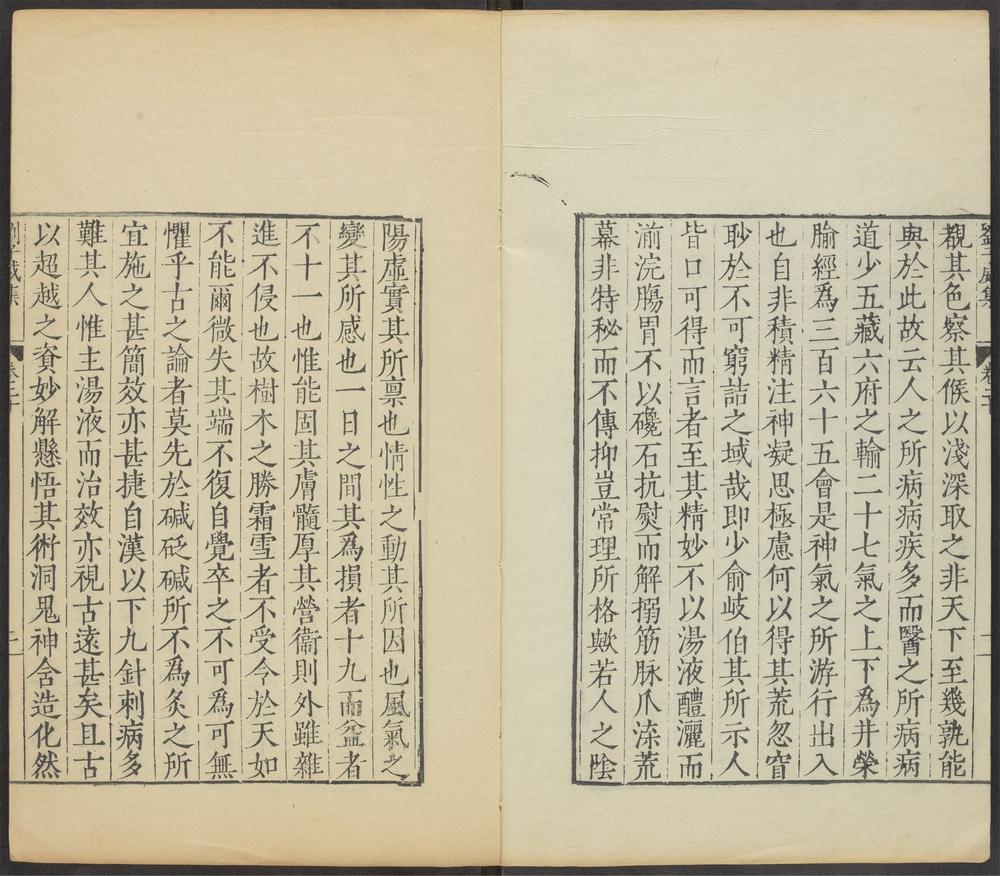 劉子威集 卷二十 二
覩其色察其候以淺深取之非天下至幾孰能
與於此故云人之所病病疾多而醫之所病病
道少五藏六府之輸二十七氣之上下為井榮
腧經為三百六十五會是神氣之所游行出入
也自非積精注神凝思極慮何以得其荒忽窅
眇於不可窮詰之域哉即少俞岐伯其所示人
皆口可得而言者至其精妙不以湯液醴灑而
湔浣腸胃不以鑱石抗熨而解搦筋脉爪湅荒
幕非特秘而不傳抑豈常理所格歟若人之陰
陽虛實其所禀也情性之動其所因也風氣之
變其所感也一日之間其為損者十九而益者
不十一也惟能固其膚髓厚其營衞則外雖雜
進不侵也故樹木之勝霜雪者不受令於天如
不能爾微失其端不復自覺卒之不可為可無
懼乎古之論者莫先於碱砭碱所不為灸之所
宜施之甚簡效亦甚捷自漢以下九針刺病多
難其人惟主湯液而治效亦視古遠甚矣且古
以超越之資妙解懸悟其術洞鬼神含造化然
劉子威集 卷二十 二